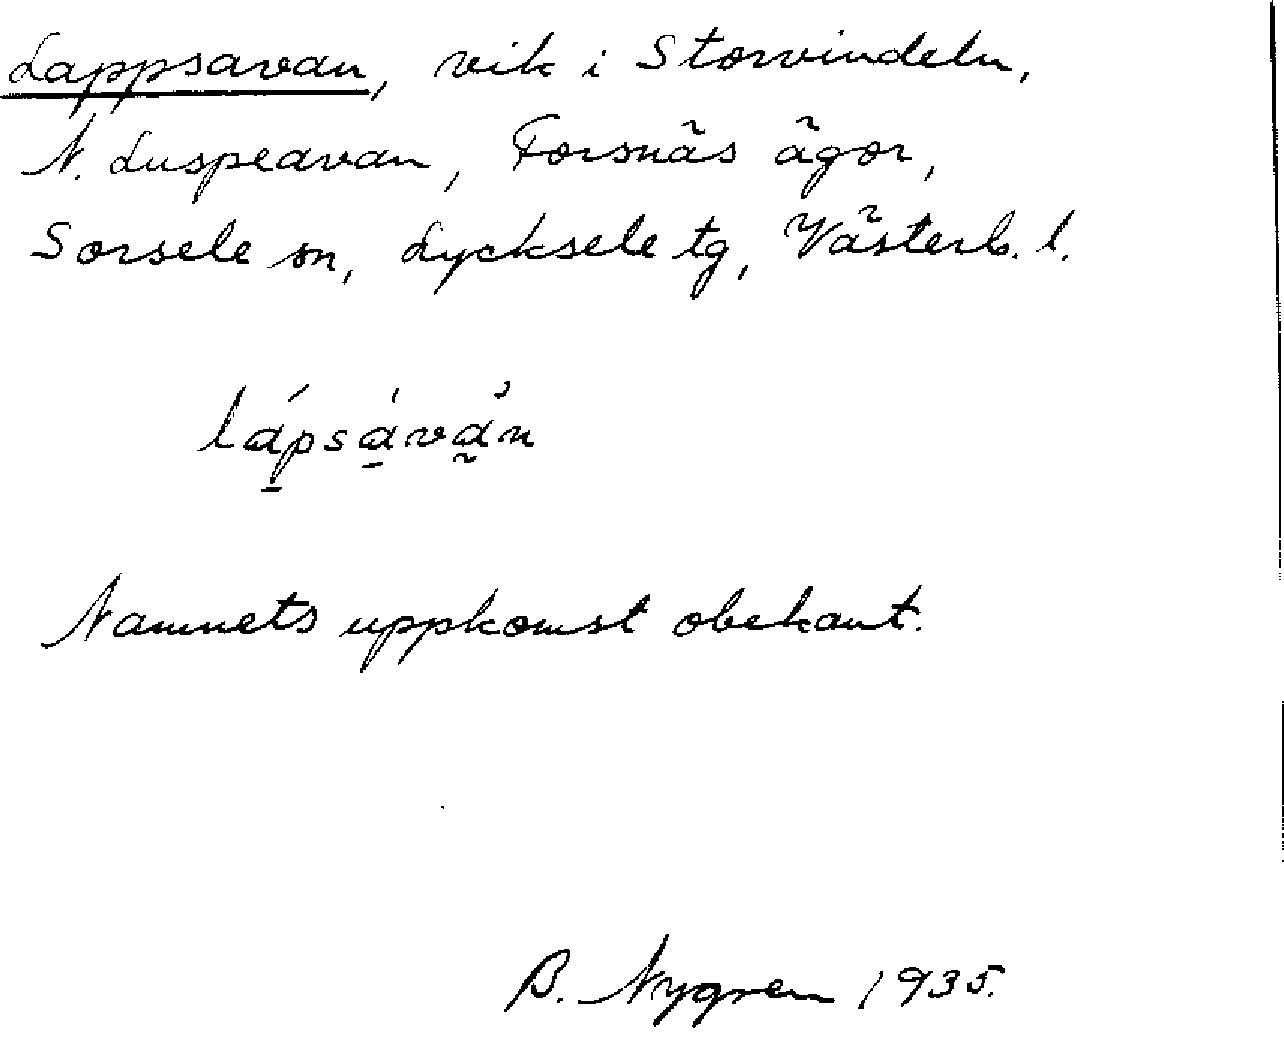 Lappsavan, vik i Storvindeln,
N. Luspeavan, Forsnäs ägor,
Sorsele sn, Lycksele tg, Västerb. l.
lápsàvàn
Namnets uppkomst obekant.
B. Nygren 1935.